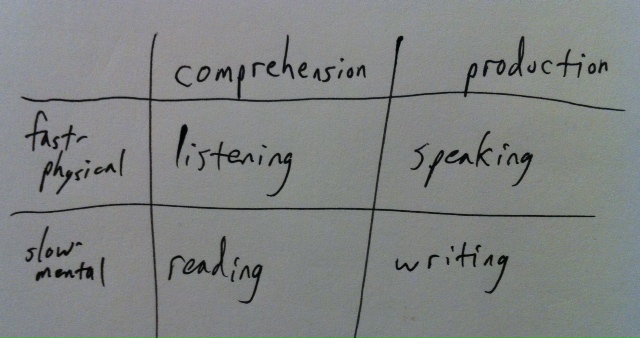 comprehension production
fast-
physical listening speaking
slow-
mental reading writing